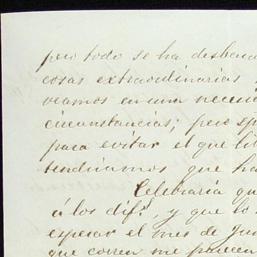 pero todo se ha desba
cosas extraordinarias
veamos en una necesi
circunstancias; pero
para evitar el que
tendriamos que ha
Celebraria qu
á los dif.s y que lo
esperar el mes de
que corren me parecen